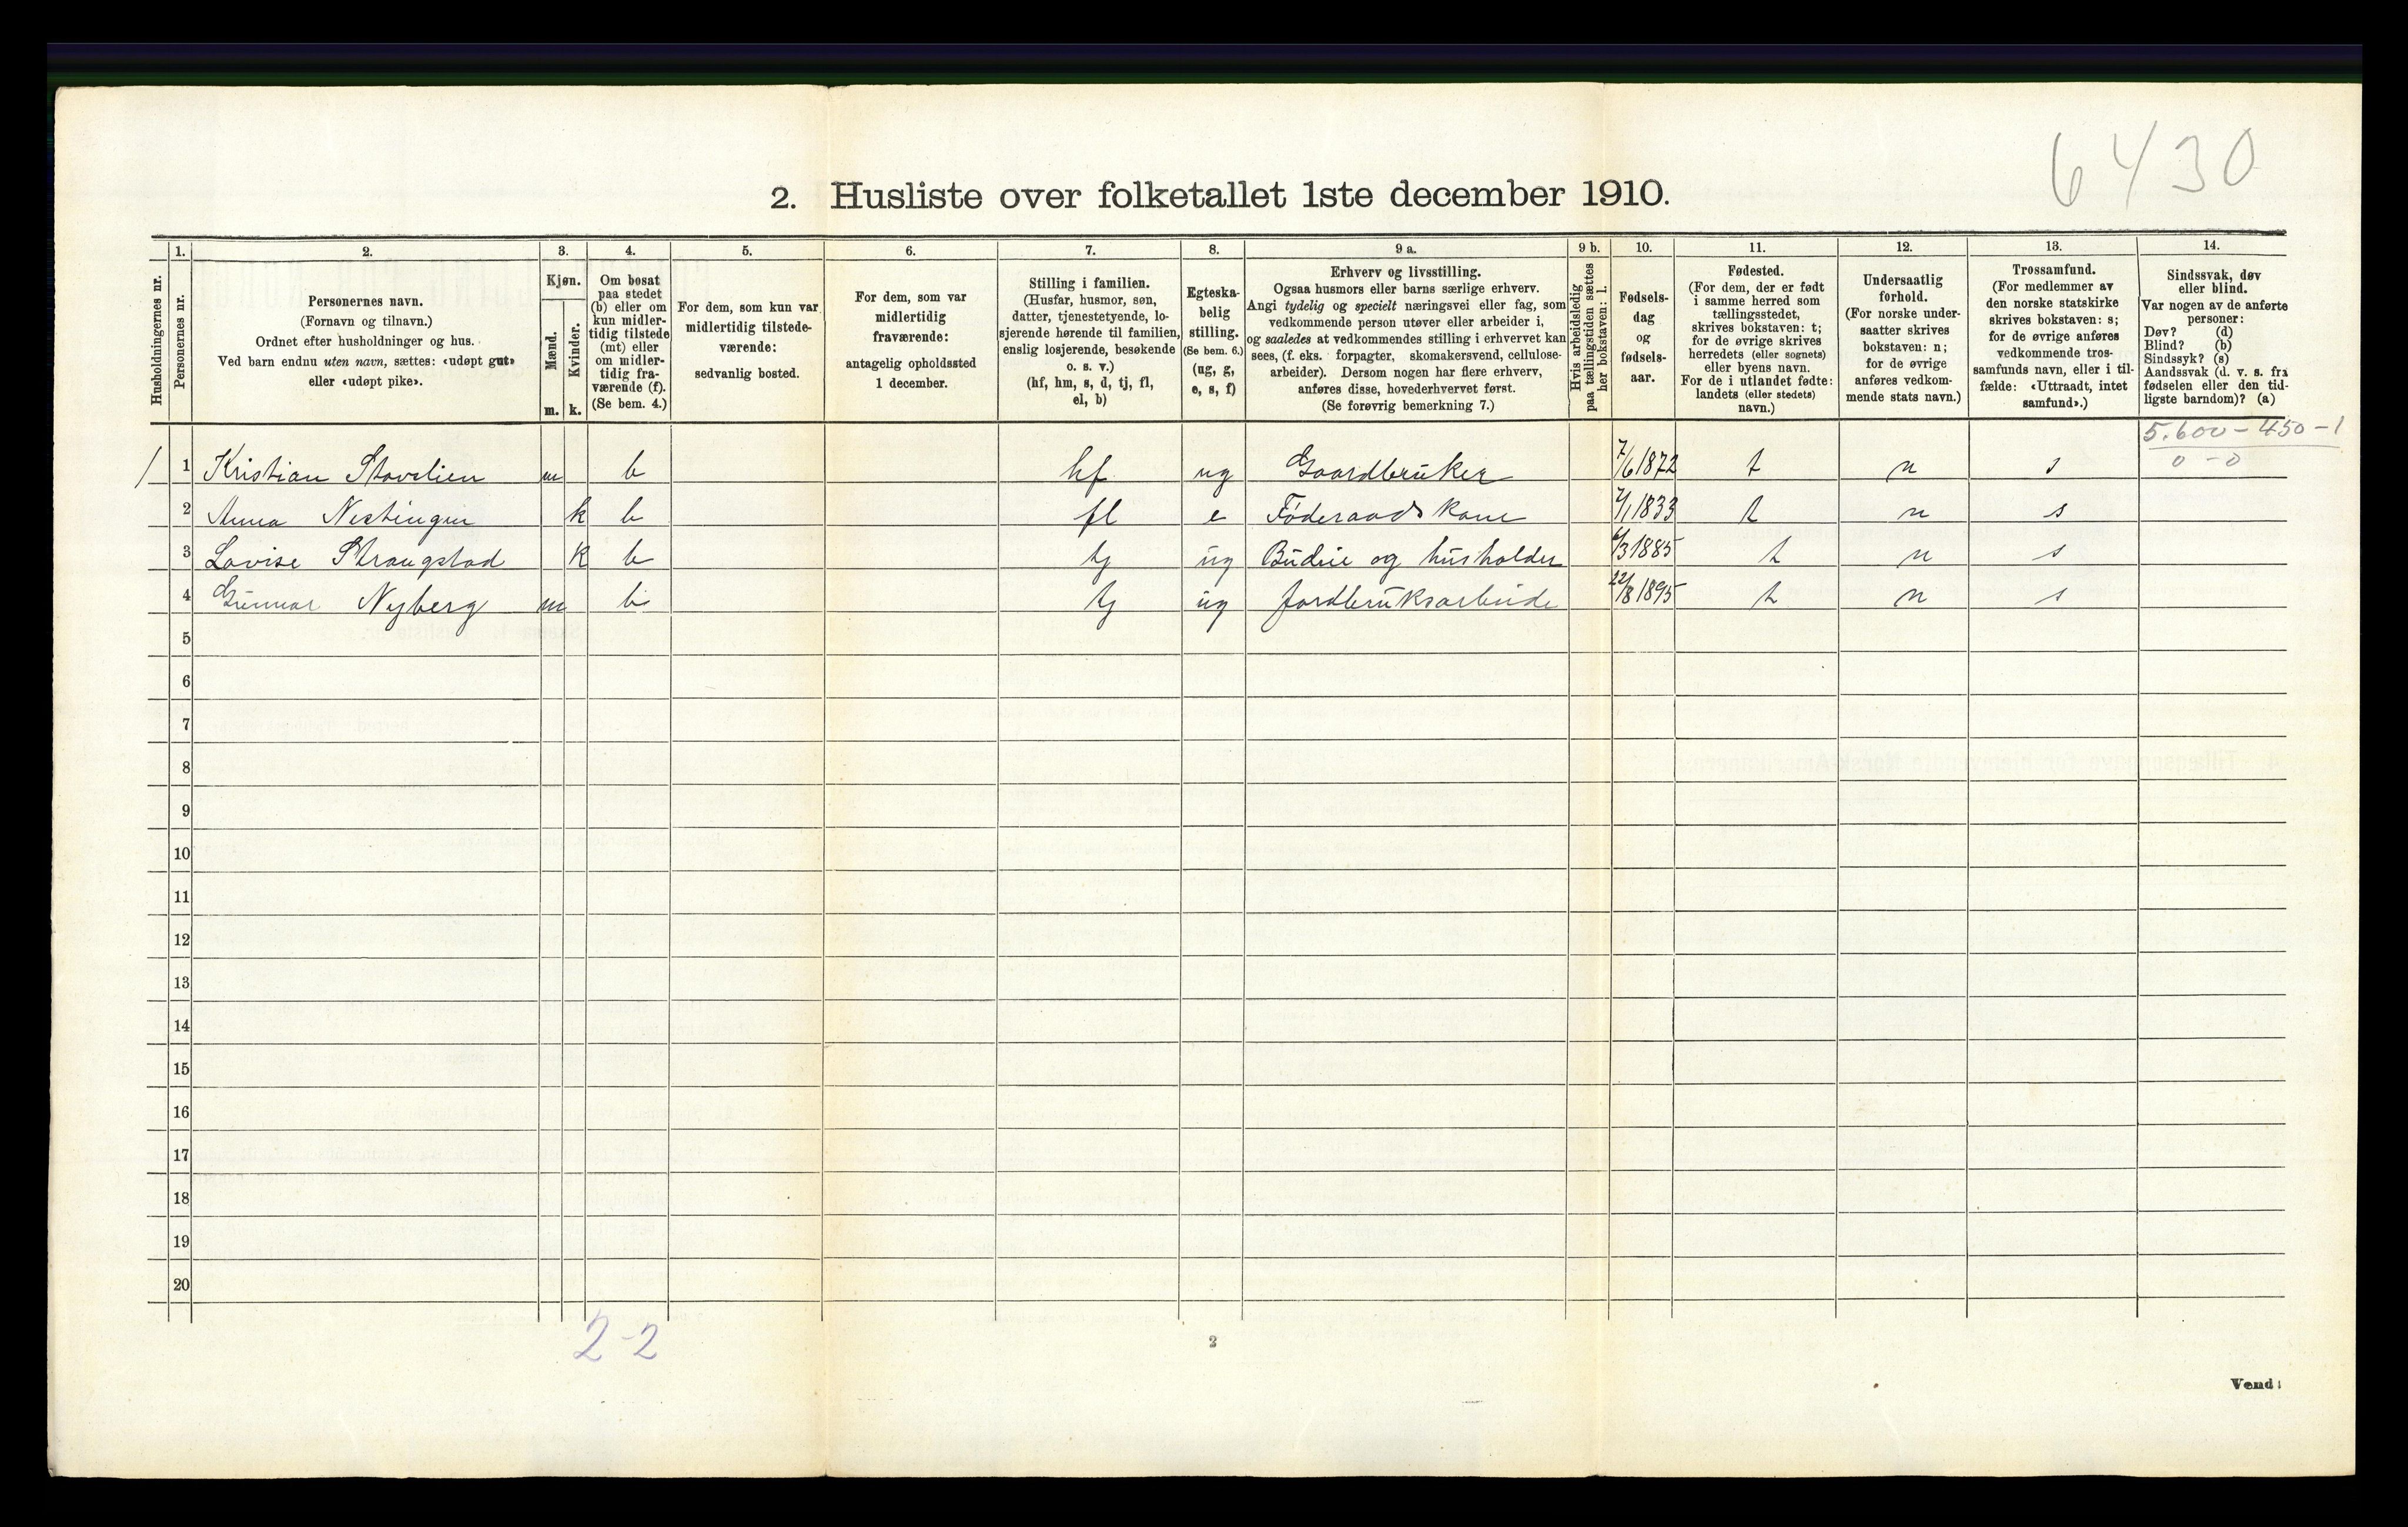 6430
2. Husliste over folketallet 1ste december 1910.
Husholdningernes nr.
1.
Personernes nr.
2.
Personernes navn.
(Fornavn og tilnavn.)
Ordnet efter husholdninger og hus.
Ved barn endnu uten navn, sættes: «udøpt gut»
eller «udøpt pike».
3.
Kjøn.
Mænd.
m.
Kvinder.
k.
4.
Om bosat
paa stedet
(b) eller om
kun midler-
tidig tilstede
(mt) eller
om midler-
tidig fra-
værende (f).
(Se bem. 4.)
5.
For dem, som kun var
midlertidig tilstede-
værende:
sedvanlig bosted.
6.
For dem, som var
midlertidig
fraværende:
antagelig opholdssted
1 december.
7.
Stilling i familien.
(Husfar, husmor, søn,
datter, tjenestetyende, lo-
sjerende hørende til familien,
enslig losjerende, besøkende
o. s. v.)
(hf, hm, s, d, tj, fl,
el, b)
8.
Egteska-
belig
stilling.
(Se bem. 6.)
(ug, g,
e, s, f)
9 a.
Erhverv og livsstilling.
Ogsaa husmors eller barns særlige erhverv.
Angi tydelig og specielt næringsvei eller fag, som
vedkommende person utøver eller arbeider i,
og saaledes at vedkommendes stilling i erhvervet kan
sees, (f. eks. forpagter, skomakersvend, cellulose-
arbeider). Dersom nogen har flere erhverv,
anføres disse, hovederhvervet først.
(Se forøvrig bemerkning 7.)
9 b.
Hvis arbeidsledig
paa tællingstiden sættes
her bokstaven: l.
10.
Fødsels-
dag
og
fødsels-
aar.
11.
Fødested.
(For dem, der er født
i samme herred som
tællingsstedet,
skrives bokstaven: t;
for de øvrige skrives
herredets (eller sognets)
eller byens navn.
For de i utlandet fødte:
landets (eller stedets)
navn.)
12.
Undersaatlig
forhold.
(For norske under-
saatter skrives
bokstaven: n;
for de øvrige
anføres vedkom-
mende stats navn.)
13.
Trossamfund.
(For medlemmer av
den norske statskirke
skrives bokstaven: s;
for de øvrige anføres
vedkommende tros-
samfunds navn, eller i til-
fælde: «Uttraadt, intet
samfund».)
14.
Sindssvak, døv
eller blind.
Var nogen av de anførte
personer:
Døv? (d)
Blind? (b)
Sindssyk? (s)
Aandssvak (d. v. s. fra
fødselen eller den tid-
ligste barndom)? (a)
5.600 - 450 - 1
0 - 0
1 1 Kristian Stovelien m b hf ug Gaardbruker 7/6 1872 t n s
2 Anna Nestingen k b fl e Føderaads kone 1833 t n s
3 Lovise Strangstad k b tj ug Budeie og husholder 1885 t n s
4 Gunnar Nyberg m b tj ug Jordbruksarbeide 22/8 1895 t n s
5
6
7
8
9
10
11
12
13
14
15
16
17
18
19
20
2-2
2
Vend!